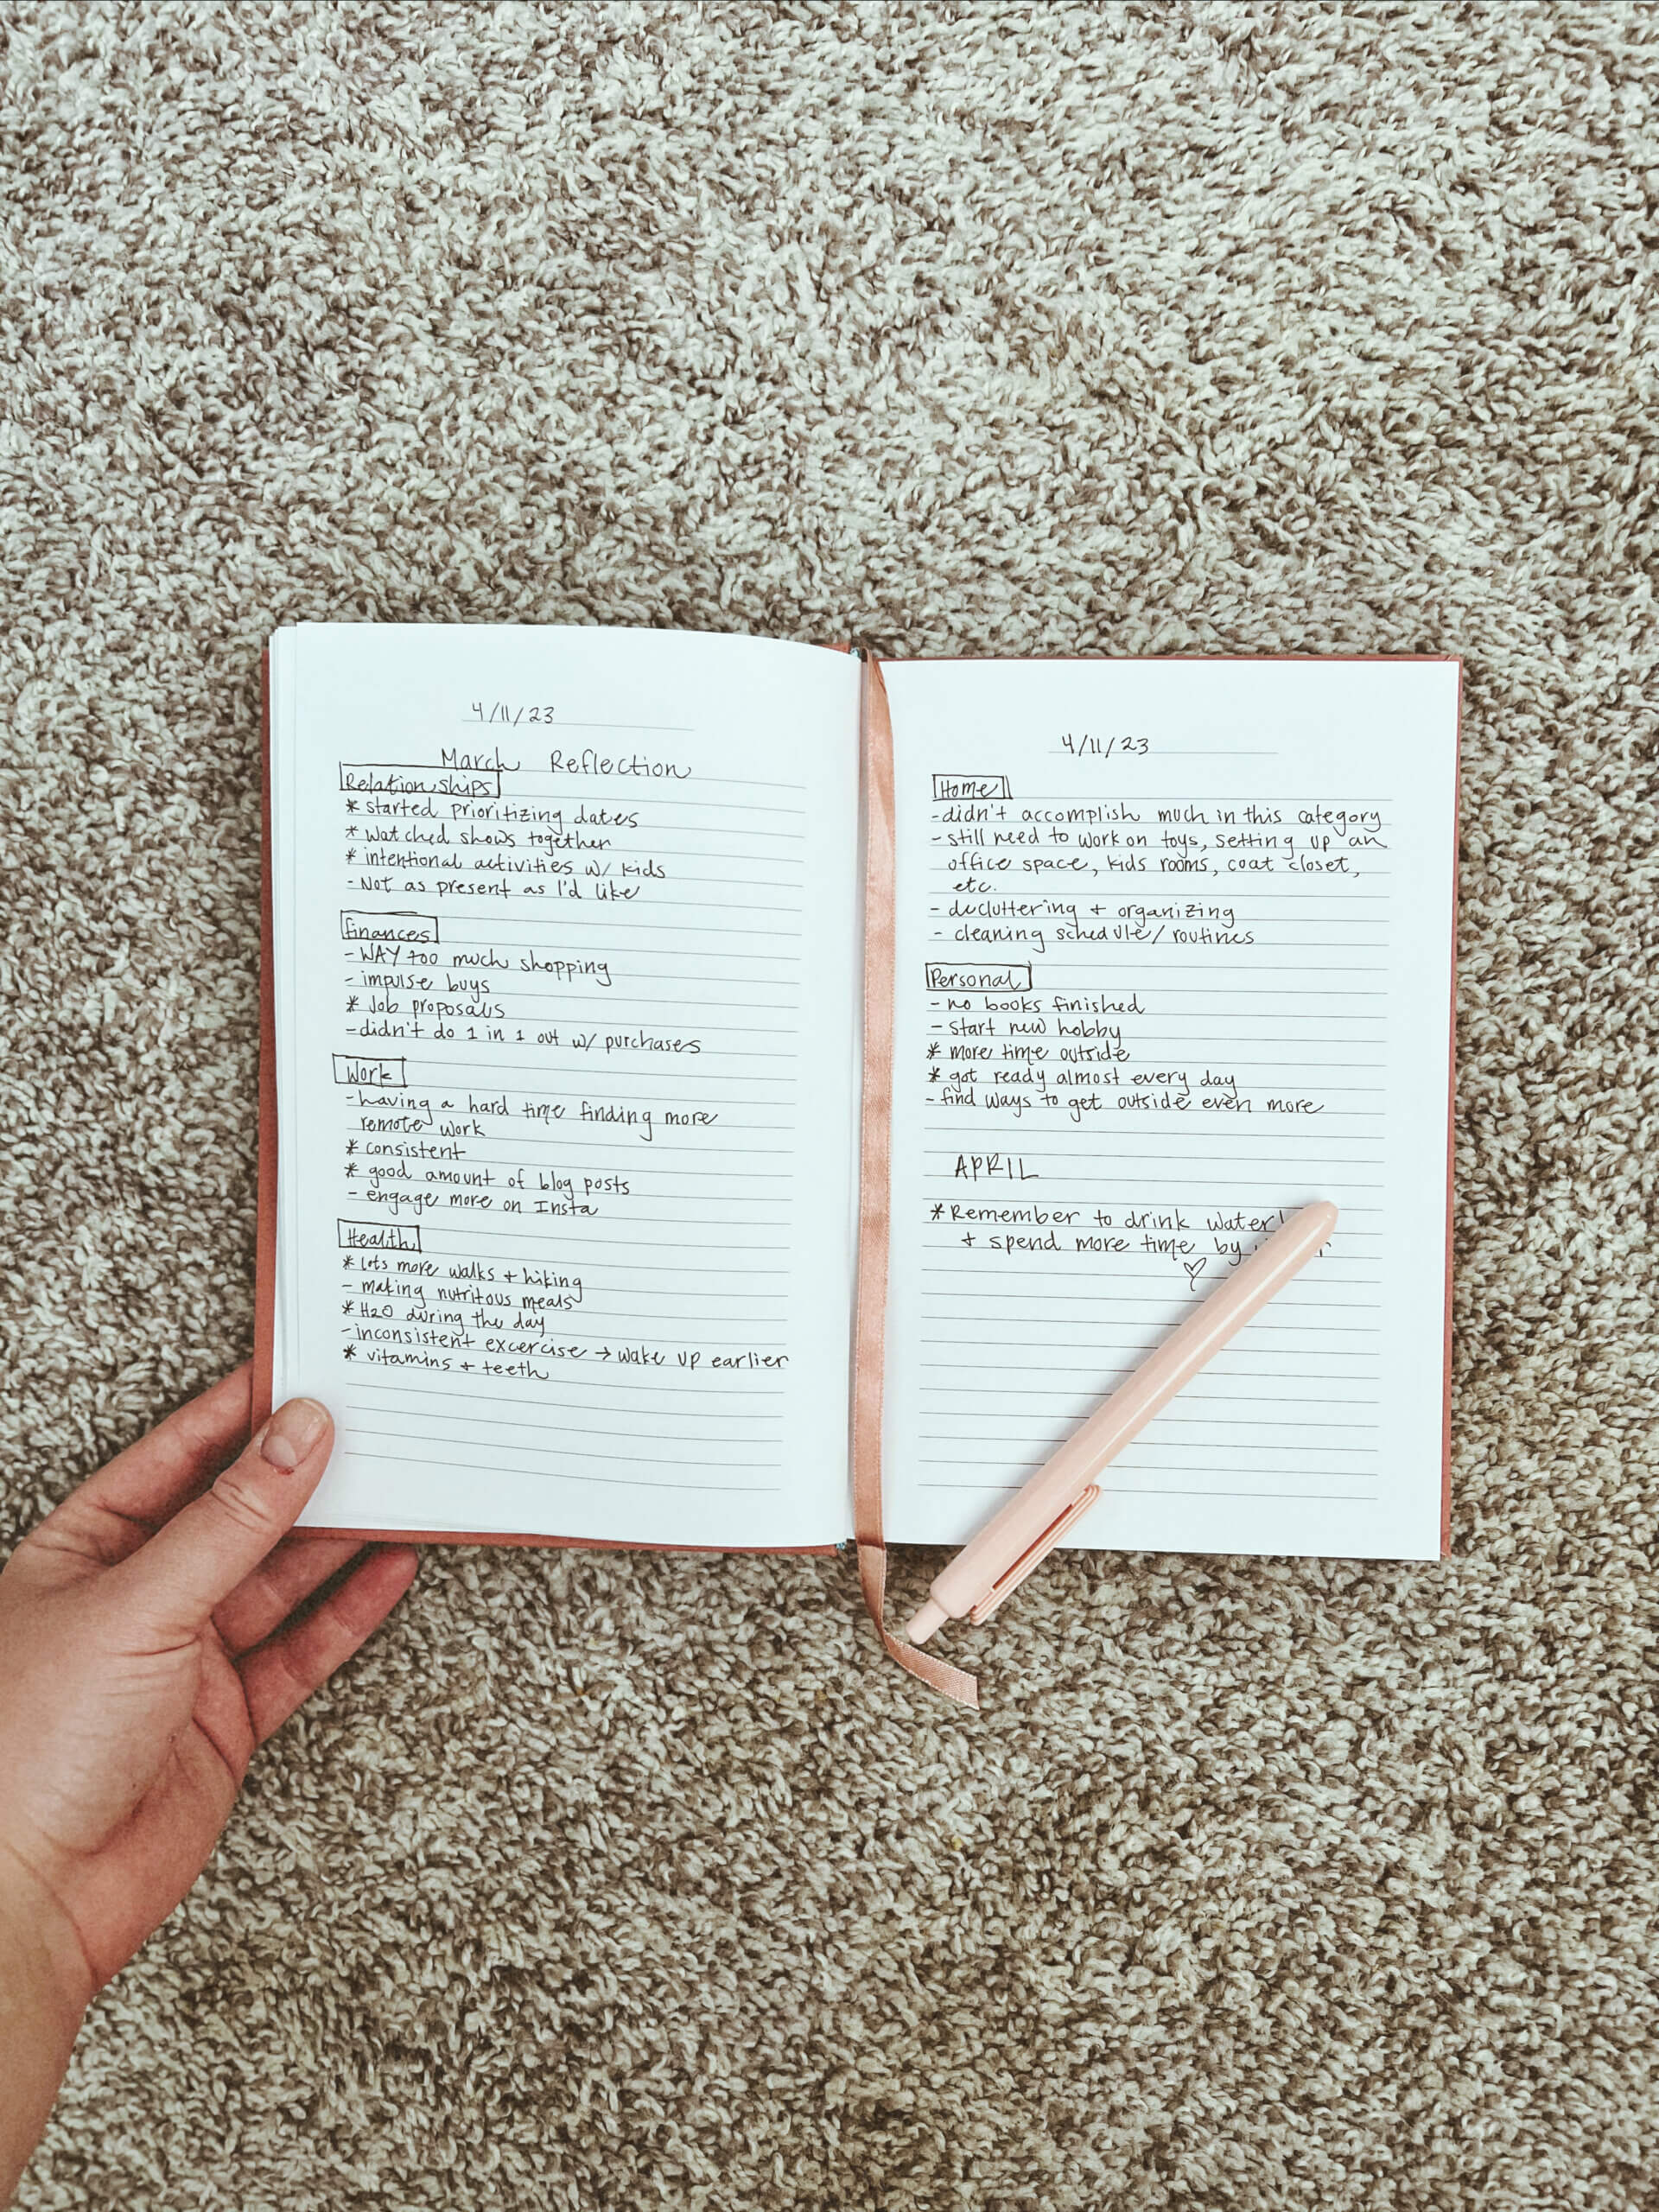 4/11/23
March Reflection
Relationships
* started prioritizing dates
* watched shows together
* intentional activities w/ kids
- Not as present as I'd like
finances
- WAY too much shopping
- impulse buys
* Job proposals
- didn't do 1 in 1 out w/ purchases
Work
- having a hard time finding more
remote work
* consistent
* good amount of blog posts
- engage more on Insta
Health
* lots more walks + hiking
- making nutritous meals
* H2O during the day
- inconsistent excercise → wake up earlier
* vitamins + teeth
4/11/23
Home
- didn't accomplish much in this category
- still need to work on toys, setting up an
office space, kids rooms, coat closet,
etc.
- decluttering + organizing
- cleaning schedule/routines
Personal
- no books finished
- start new hobby
* more time outside
* got ready almost every day
- find ways to get outside even more
APRIL
* Remember to drink water!
+ spend more time by